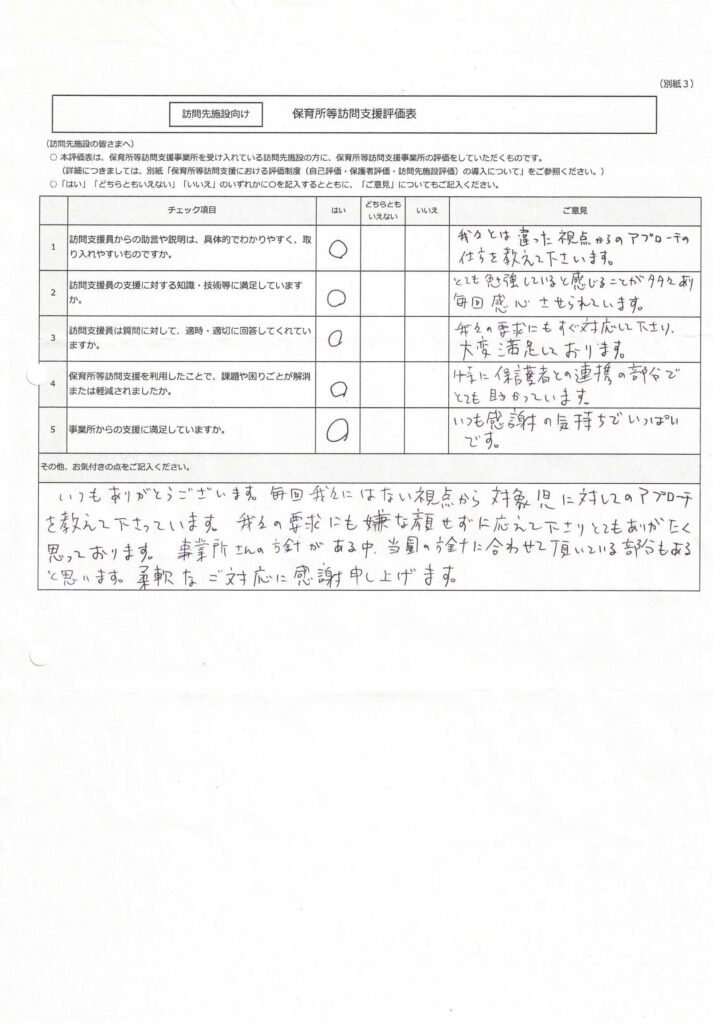 (別紙３)
訪問先施設向け 保育所等訪問支援評価表
(訪問先施設の皆さまへ)
○ 本評価表は、保育所等訪問支援事業所を受け入れている訪問先施設の方に、保育所等訪問支援事業所の評価をしていただくものです。
(詳細につきましては、別紙「保育所等訪問支援における評価制度（自己評価・保護者評価・訪問先施設評価）の導入について」をご参照ください。)
○「はい」「どちらともいえない」「いいえ」のいずれかに○を記入するとともに、「ご意見」についてもご記入ください。
チェック項目 はい どちらとも いいえ ご意見
いえない
1 訪問支援員からの助言や説明は、具体的でわかりやすく、取 ○ 我々とは違った視点からのアプローチの
り入れやすいものですか。 仕方を教えて下さいます。
2 訪問支援員の支援に対する知識・技術等に満足しています ○ とても勉強していると感じることが多々あり
か。 毎回感心させられています。
3 訪問支援員は質問に対して、適時・適切に回答してくれてい ○ 我々の要求にもすぐ対応して下さり、
ますか。 大変満足しております。
4 保育所等訪問支援を利用したことで、課題や困りごとが解消 ○ 特に保護者との連携の部分で
または軽減されましたか。 とても助かっています。
5 事業所からの支援に満足していますか。 ○ いつも感謝の気持ちでいっぱい
です。
その他、お気付きの点をご記入ください。
いつもありがとうございます。毎回我々にはない視点から対象児に対してのアプローチ
を教えて下さっています。我々の要求にも嫌な顔せずに応えて下さりとてもありがたく
思っております。事業所さんの方針がある中、当園の方針に合わせて頂いている部分もある
と思います。柔軟なご対応に感謝申し上げます。